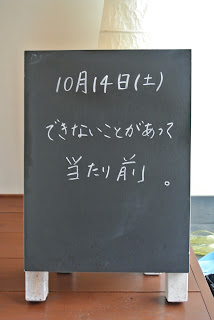 10月14日(土)
できないことがあって
当たり前。